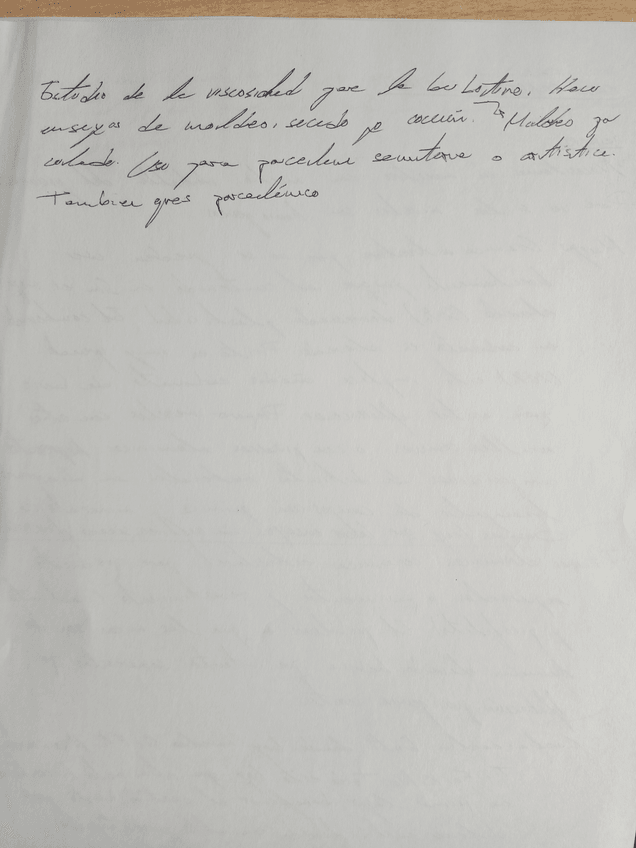 Estudio de la viscosidad para la barbotina. Hacer
ensayos de moldeo, secado y cocción. Moldeo por
colado. Uso para porcelana sanitaria o artística.
Tambien gres porcelánico